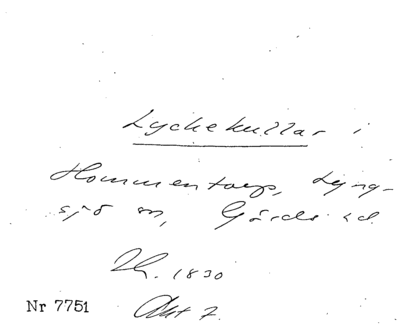 Lyckekullar i
Hommentorp, Lyng-
sjö sn, Gärds hd.
Th. 1830
Akt 7.
Nr 7751